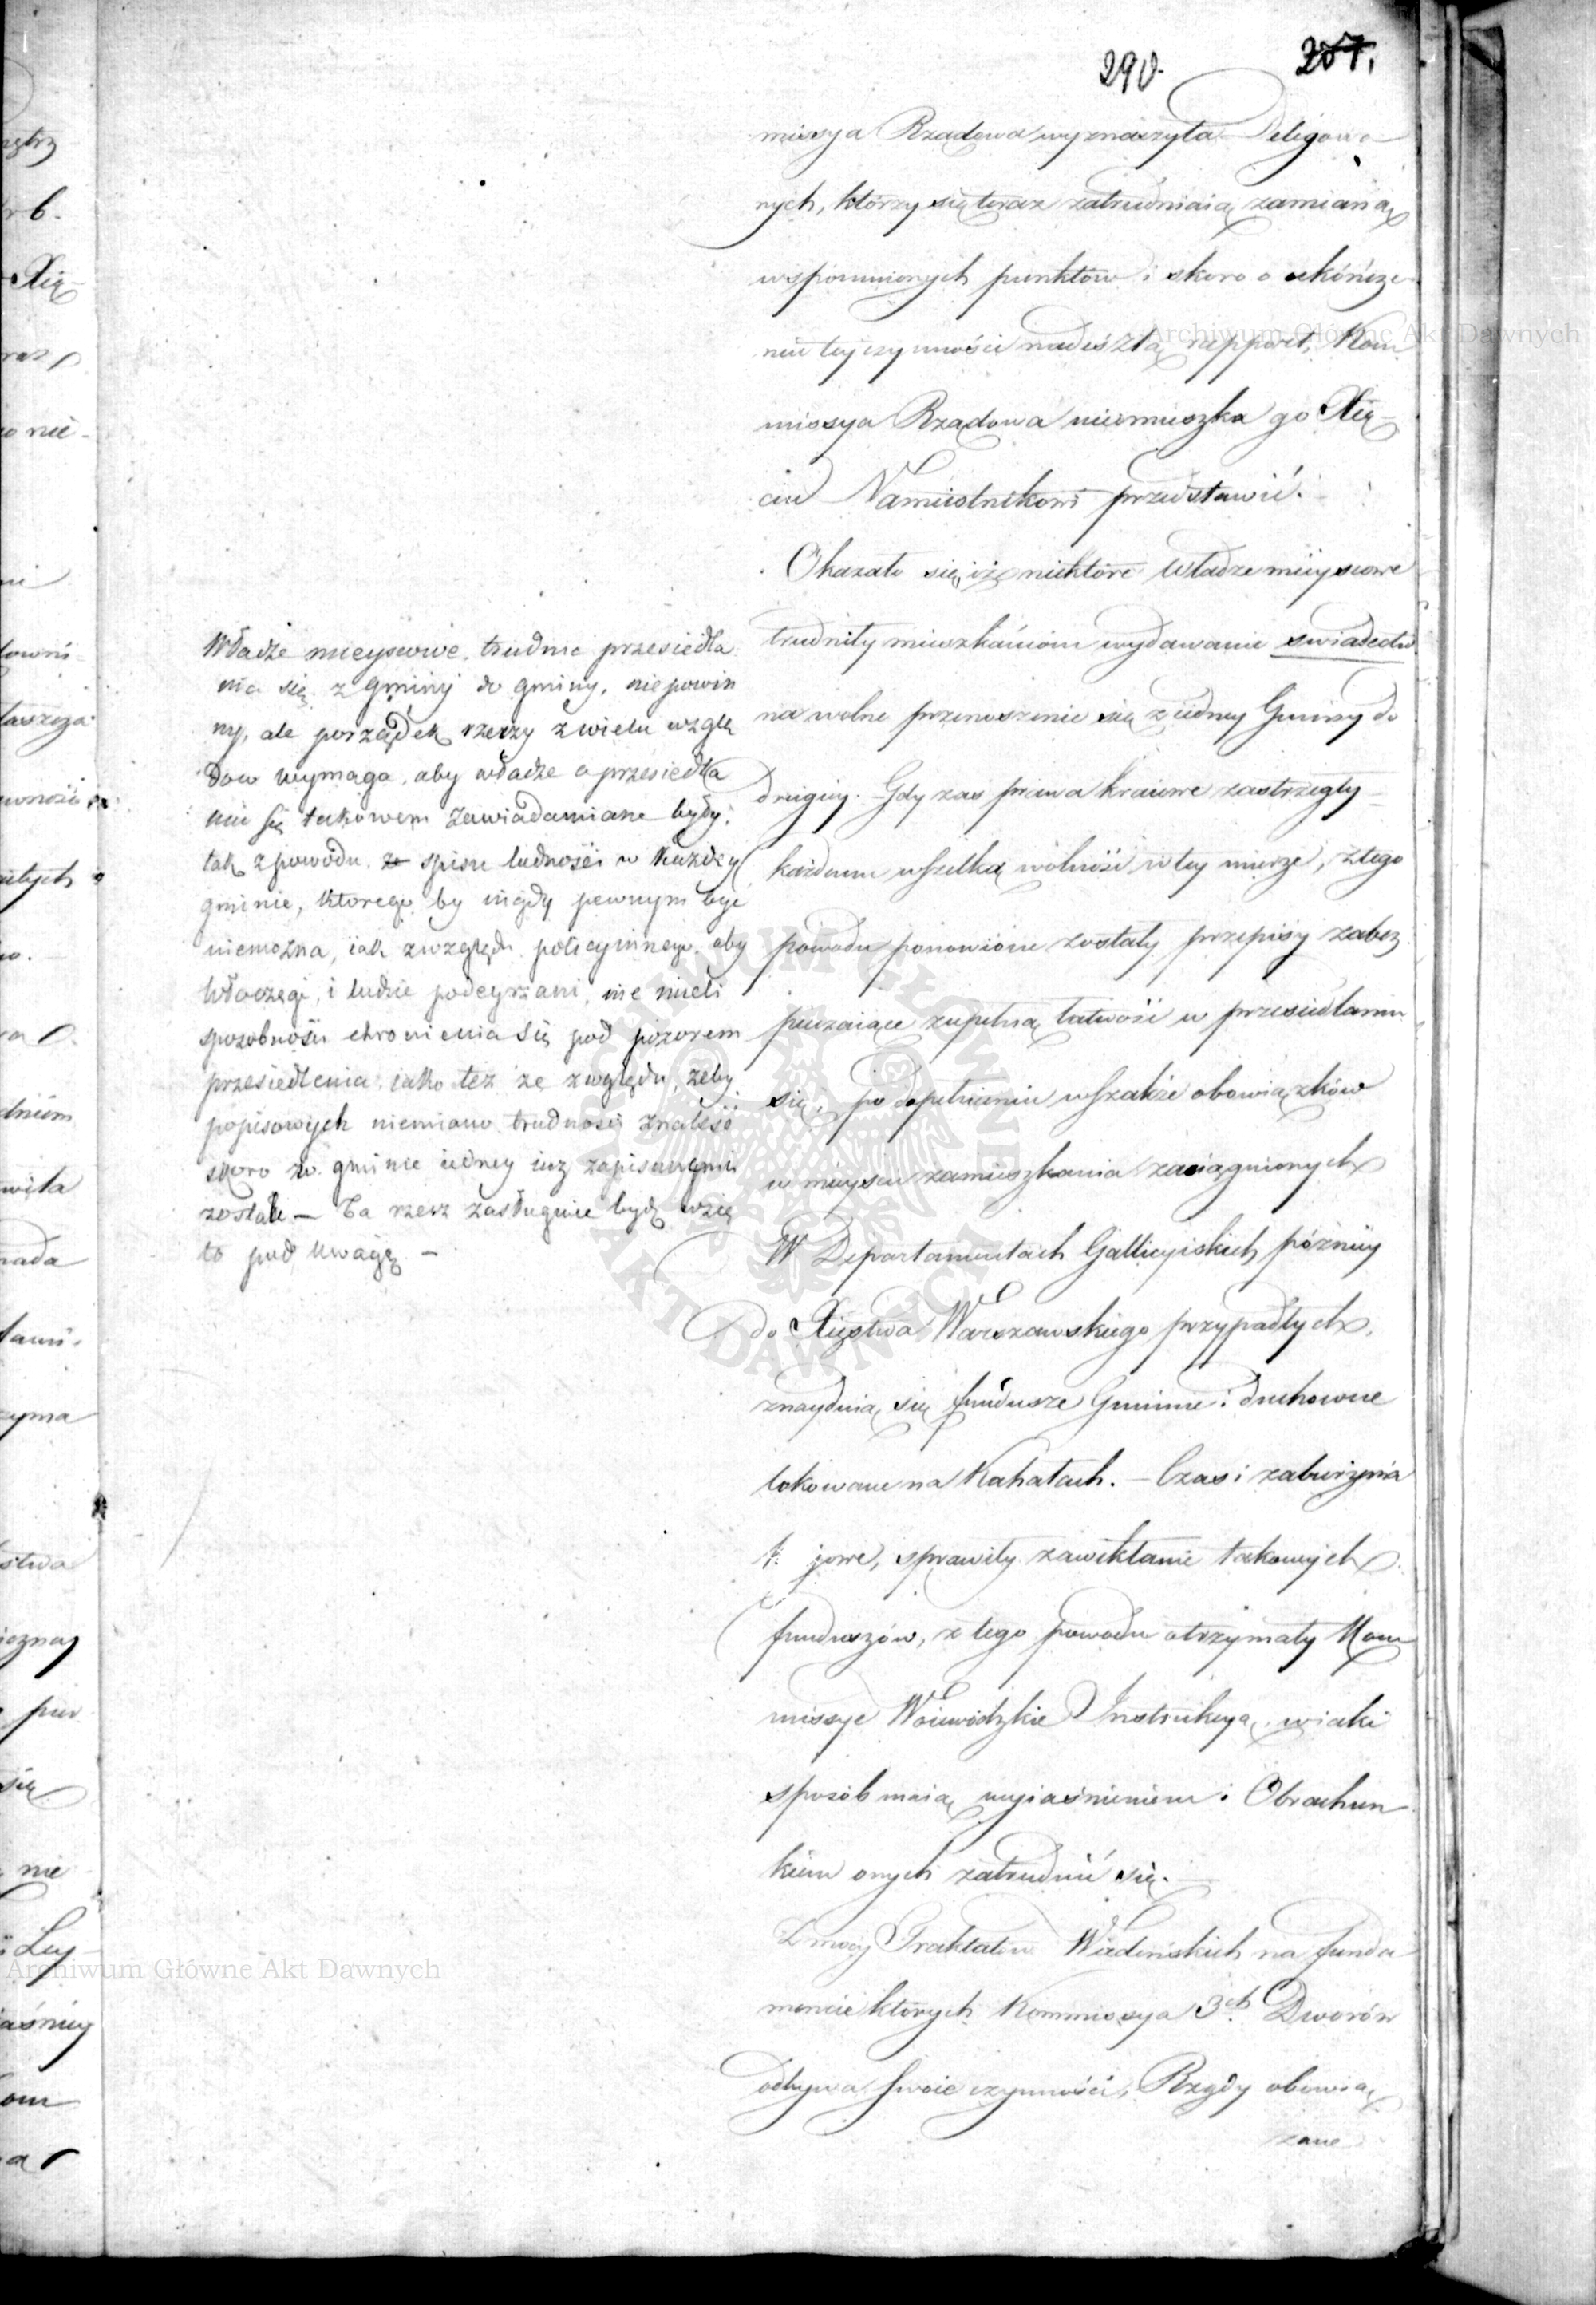 290.
257.
missya Rządowa wyznaczyła Deligowa
nych, którzy się teraz zatrudniaią zamianą
wspomnionych punktów i skoro o ukończe
niu tey czynności nadeszłą rapport, Kom
missya Rządowa nieomieszka go Xię-
ciu Namiestnikowi przedstawić.
Okazało się, iż niektóre Władze mieyscowe
trudniły mieszkańcom wydawanie swiadectw
na wolne przenoszenie się z iedney Gminy do
drugiey. Gdy zas prawa kraiowe zastrzegły
każdemu wszelką wolność w tey mierze, z tego
powodu ponowione zostały przepisy zabez
pieczaiące zupełną łatwość w przesiedlaniu
się, po dopełnieniu wszakże obowiązków
w mieyscu zamieszkania zaciągnionych
W Departamentach Gallicyiskich późniey
do Xięstwa Warszawskiego przypadłych,
znayduią się fundusze Gminne i duchowne
lokowane na Kahałach. – Czas i zaburzenia
jowe, sprawiły zawikłanie takowych
funduszów, z tego powodu otrzymały Kom
missye Woiewódzkie Instrukcyą, w iaki
sposób maią wyiaśnieniem i Obrachun
kiem onych zatrudnić się. –
Z mocy Traktatów Wiedeńskich na funda
mencie których Kommissya 3ch Dworów
odbywa swoie czynności, Rządy obowią
zane
Władze mieyscowe, trudnić przesiedla
nia się z gminy do gminy, niepowin
ny, ale porządek rzeczy z wielu wzglę
dow wymaga, aby władze o przesiedla
niu się takowem zawiadamiane były,
tak z powodu spisu ludności w każdey
gminie, ktorego by nigdy pewnym być
niemożna, iak zwzględu policyinnego, aby
włoczęgi, i ludzie podeyrzani, nie mieli
sposobności chronienia się pod pozorem
przesiedlenia, iako też ze względu, żeby
popisowych niemiano trudności znaleść
skoro w gminie iedney iuż zapisanemi
zostali – Ta rzecz zasługuie być wzię
to pod uwagę –
Archiwum Główne Akt Dawnych
ARCHIWUM GŁÓWNE AKT DAWNYCH
Archiwum Główne Akt Dawnych